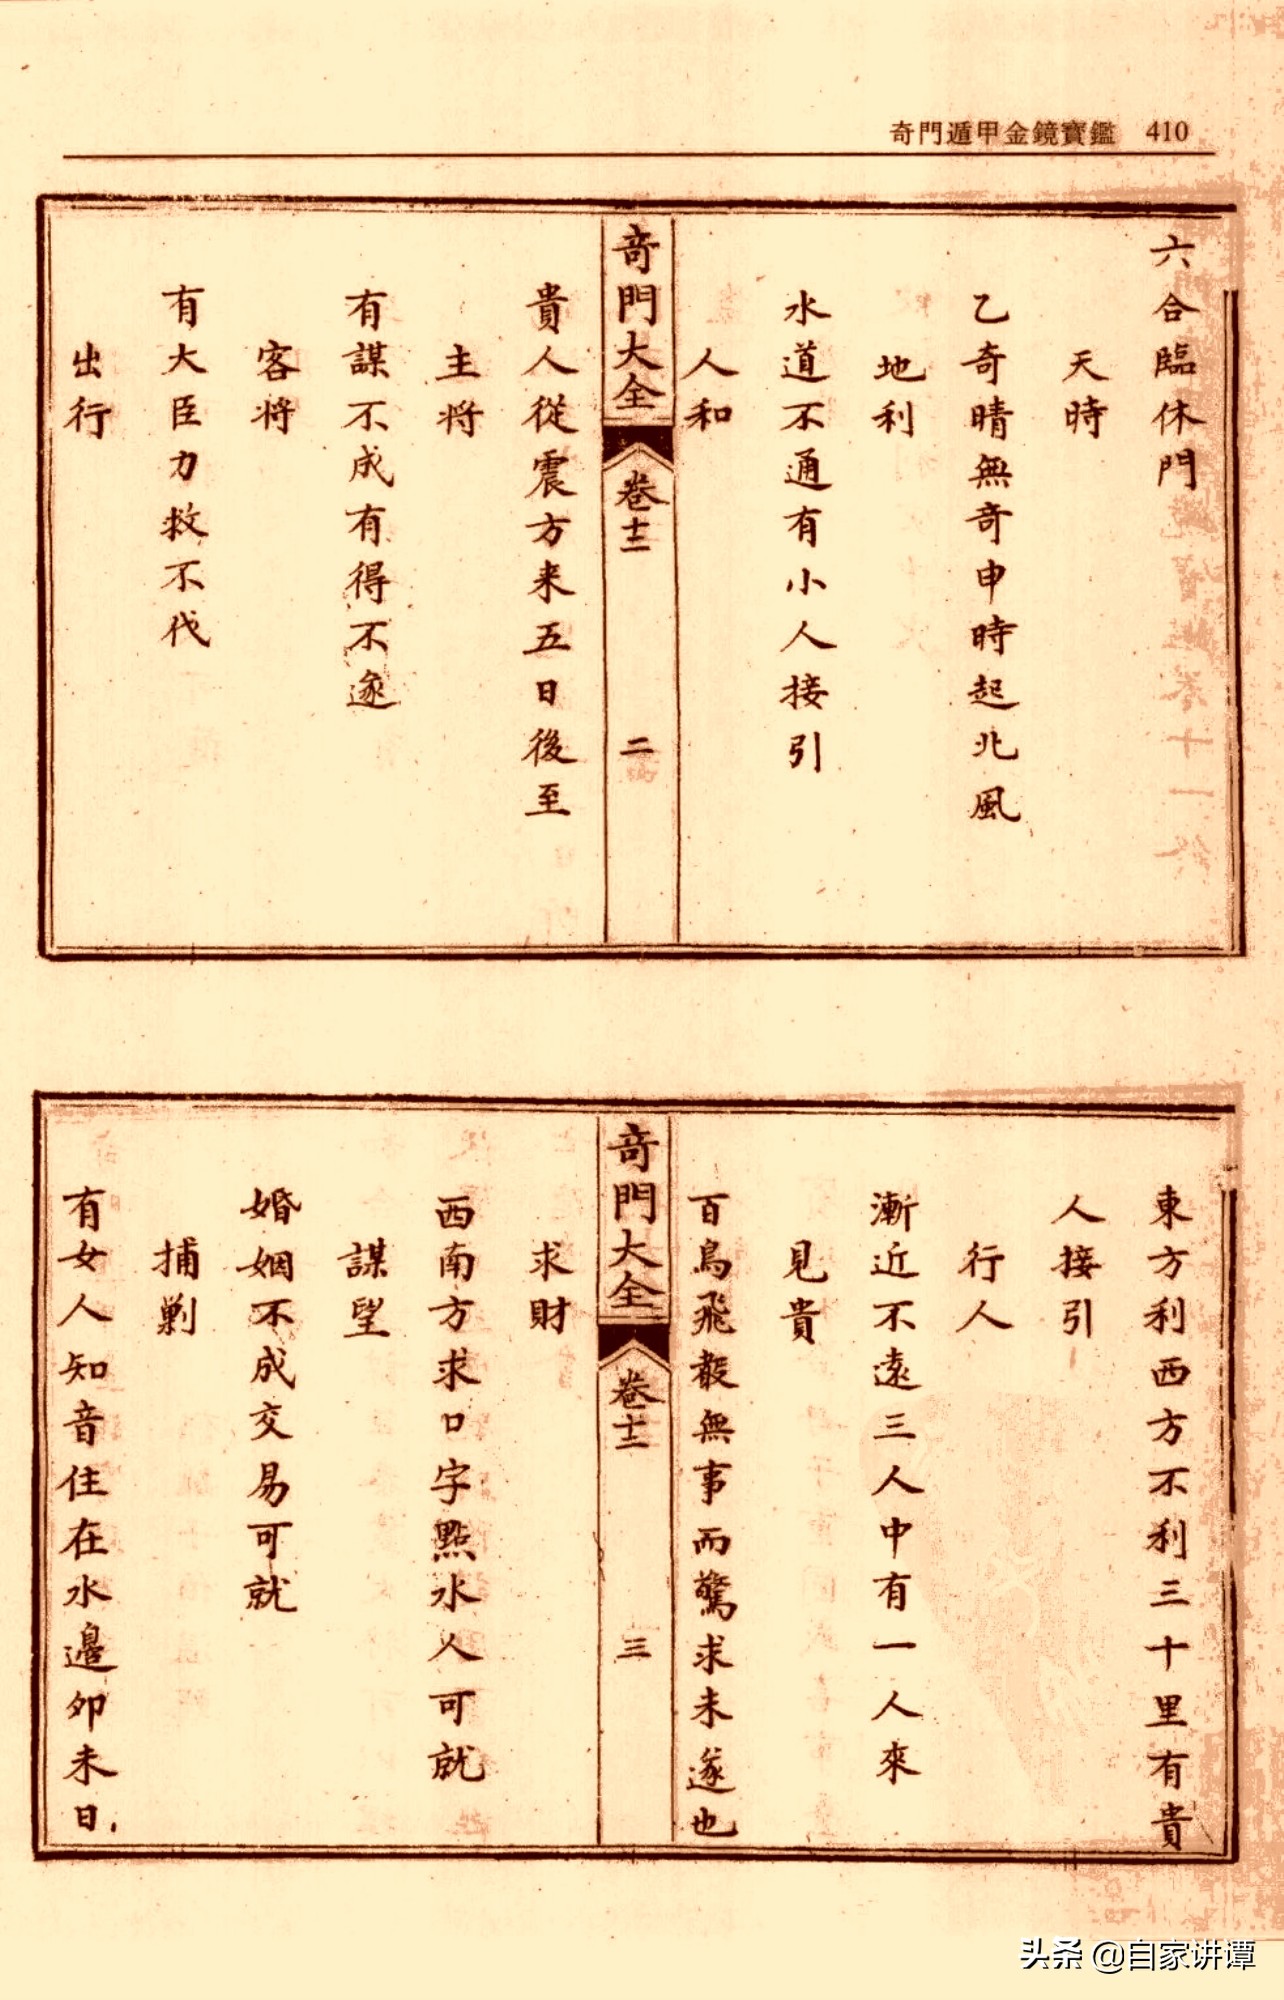 奇門遁甲金鏡寶鑑 410
六合臨休門
天時
乙奇晴無奇申時起北風
地利
水道不通有小人接引
人和
奇門大全 卷十二 二
貴人從震方来五日後至
主将
有謀不成有得不遂
客将
有大臣力救不伐
出行
東方利西方不利三十里有貴
人接引
行人
漸近不遠三人中有一人來
見貴
百鳥飛散無事而驚求未遂也
奇門大全 卷十二 三
求財
西南方求口字點水人可就
謀望
婚姻不成交易可就
捕剿
有女人知音住在水邊卯未日
头条 @自家讲谭